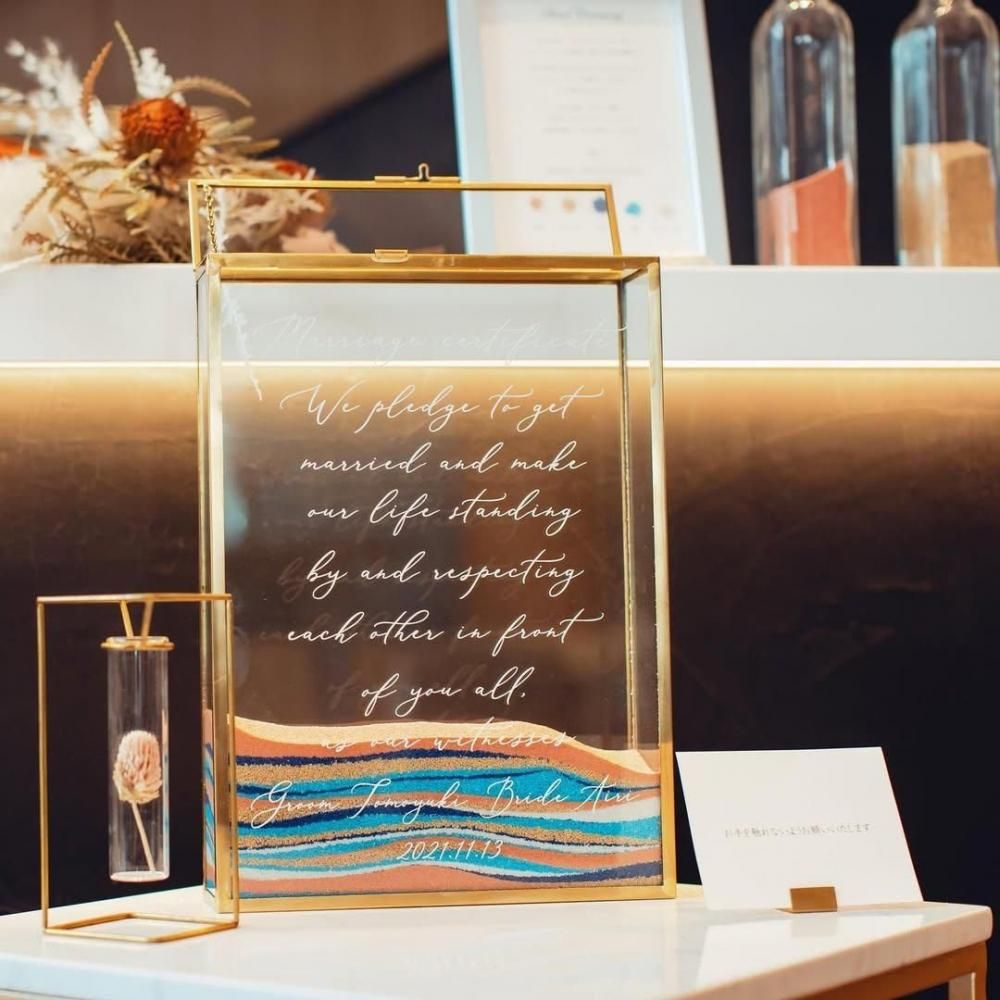 Marriage certificate
We pledge to get
married and make
our life standing
by and respecting
each other in front
of you all,
as our witnesses
Groom Tomoyuki Bride Airi
2021.11.13
お手を触れないようお願いいたします